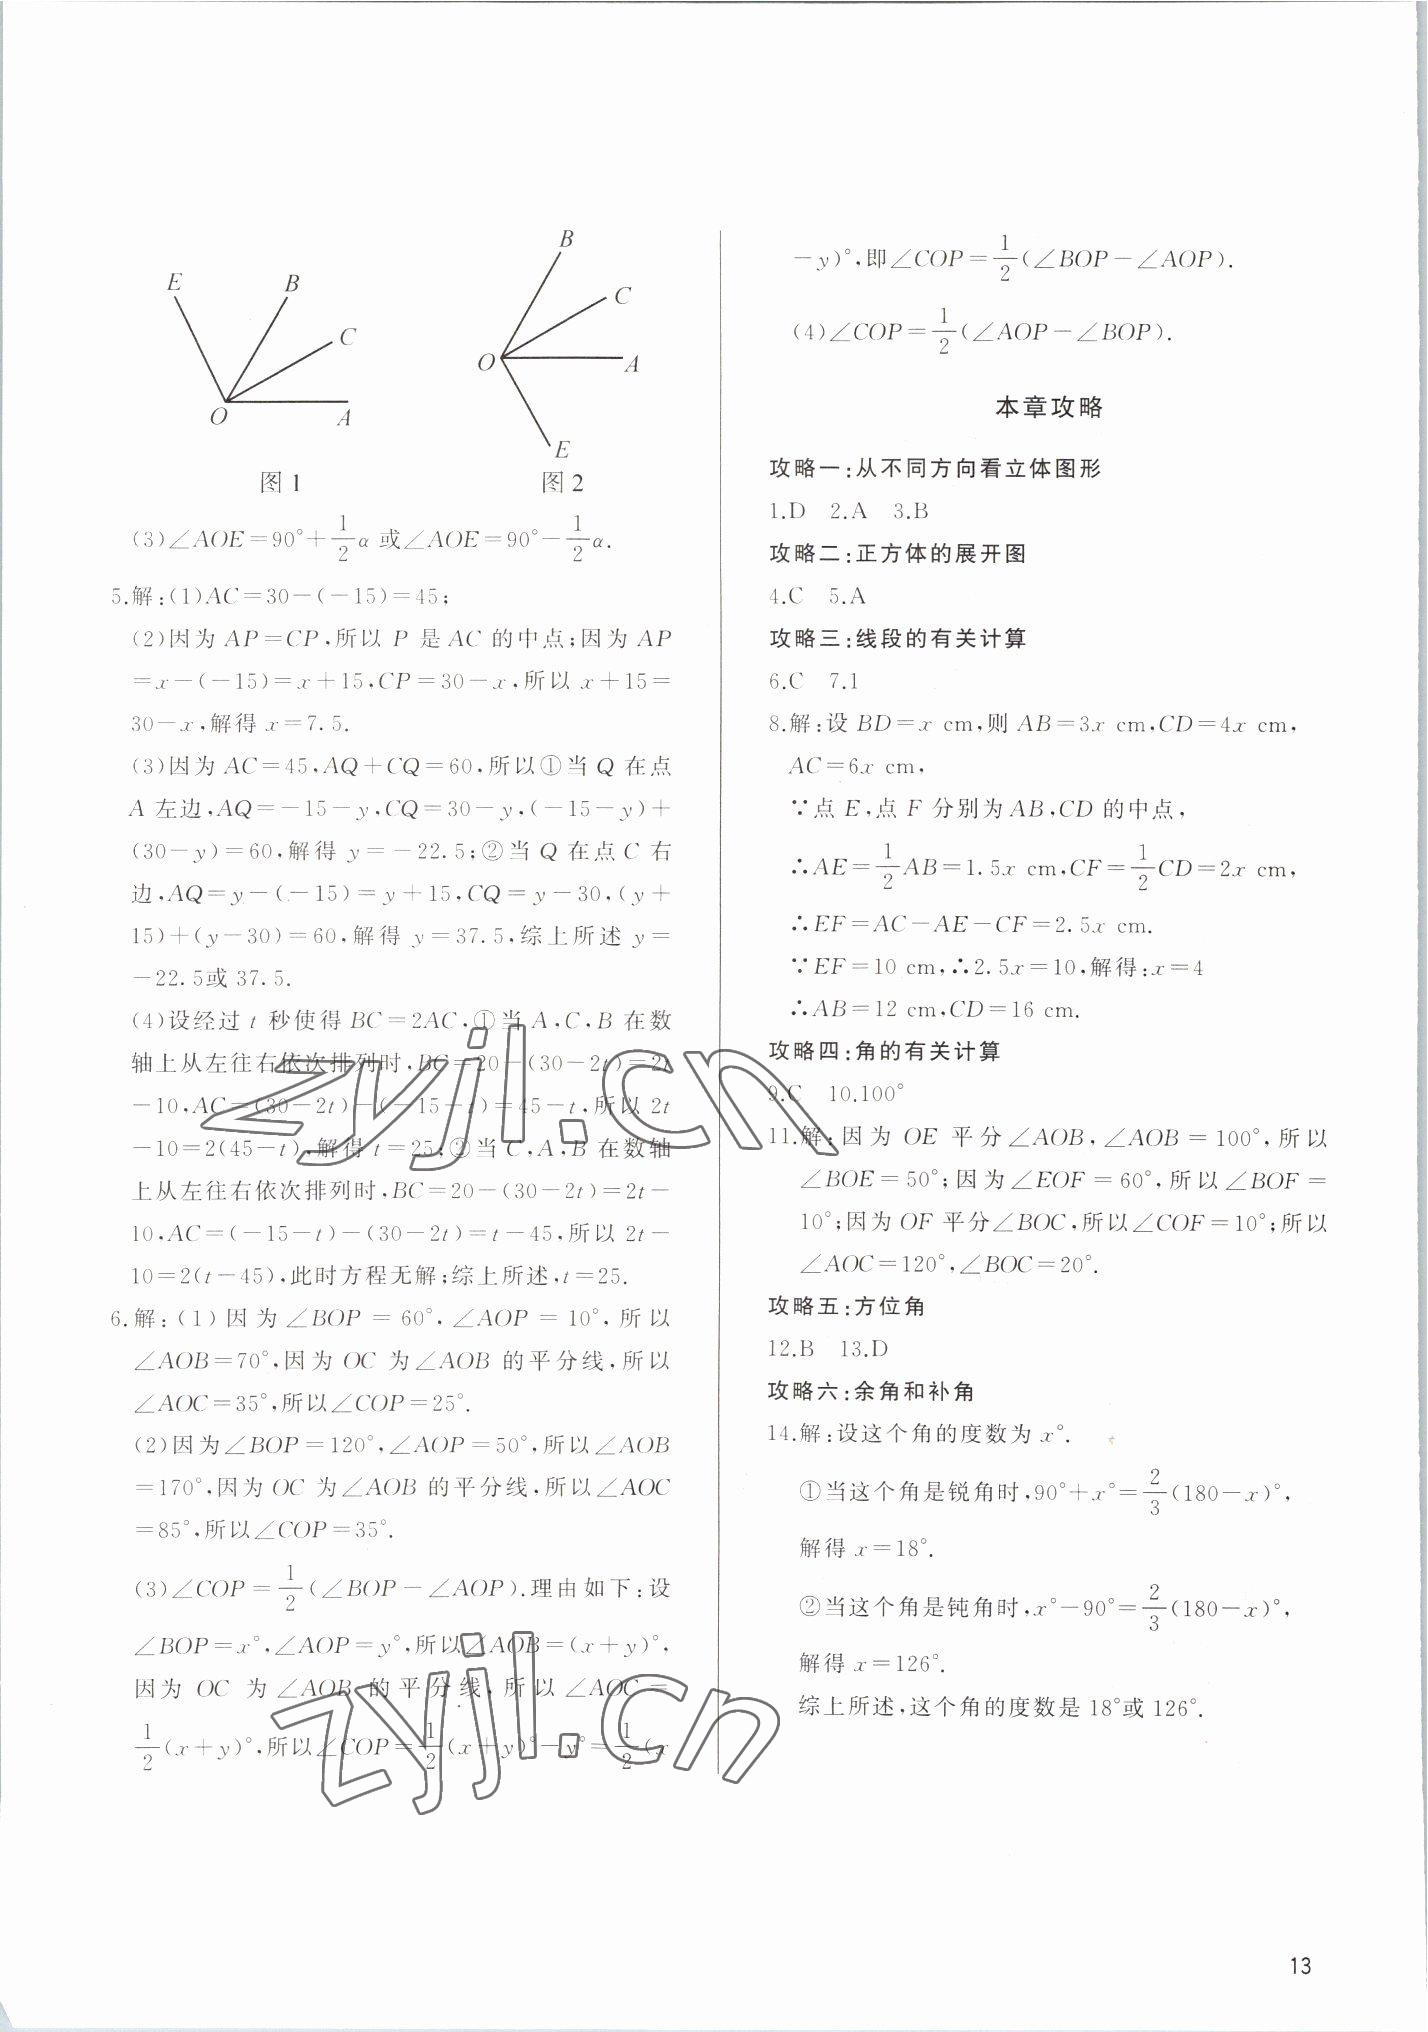 E
B
C
O
A
图1
B
C
O
A
E
图2
(3)∠AOE=90°+1/2α或∠AOE=90°-1/2α.
5.解:(1)AC=30-(-15)=45;
(2)因为AP=CP,所以P是AC的中点;因为AP
=x-(-15)=x+15,CP=30-x,所以x+15=
30-x,解得x=7.5.
(3)因为AC=45,AQ+CQ=60,所以①当Q在点
A左边,AQ=-15-y,CQ=30-y,(-15-y)+
(30-y)=60,解得y=-22.5;②当Q在点C右
边,AQ=y-(-15)=y+15,CQ=y-30,(y+
15)+(y-30)=60,解得y=37.5,综上所述y=
-22.5或37.5.
(4)设经过t秒使得BC=2AC,①当A,C,B在数
轴上从左往右依次排列时,BC=20-(30-2t)=2t
-10,AC=(30-2t)-(-15-t)=45-t,所以2t
-10=2(45-t),解得t=25;②当C,A,B在数轴
上从左往右依次排列时,BC=20-(30-2t)=2t-
10,AC=(-15-t)-(30-2t)=t-45,所以2t-
10=2(t-45),此时方程无解;综上所述,t=25.
6.解:(1)因为∠BOP=60°,∠AOP=10°,所以
∠AOB=70°,因为OC为∠AOB的平分线,所以
∠AOC=35°,所以∠COP=25°.
(2)因为∠BOP=120°,∠AOP=50°,所以∠AOB
=170°,因为OC为∠AOB的平分线,所以∠AOC
=85°,所以∠COP=35°.
(3)∠COP=1/2(∠BOP-∠AOP).理由如下:设
∠BOP=x°,∠AOP=y°,所以∠AOB=(x+y)°,
因为OC为∠AOB的平分线,所以∠AOC=
1/2(x+y)°,所以∠COP=1/2(x+y)°-y°=1/2(x
-y)°,即∠COP=1/2(∠BOP-∠AOP).
(4)∠COP=1/2(∠AOP-∠BOP).
本章攻略
攻略一:从不同方向看立体图形
1.D 2.A 3.B
攻略二:正方体的展开图
4.C 5.A
攻略三:线段的有关计算
6.C 7.1
8.解:设BD=x cm,则AB=3x cm,CD=4x cm,
AC=6x cm,
∵点E,点F分别为AB,CD的中点,
∴AE=1/2AB=1.5x cm,CF=1/2CD=2x cm,
∴EF=AC-AE-CF=2.5x cm.
∵EF=10 cm,∴2.5x=10,解得:x=4
∴AB=12 cm,CD=16 cm.
攻略四:角的有关计算
9.C 10.100°
11.解:因为OE平分∠AOB,∠AOB=100°,所以
∠BOE=50°;因为∠EOF=60°,所以∠BOF=
10°;因为OF平分∠BOC,所以∠COF=10°;所以
∠AOC=120°,∠BOC=20°.
攻略五:方位角
12.B 13.D
攻略六:余角和补角
14.解:设这个角的度数为x°.
①当这个角是锐角时,90°+x°=2/3(180-x)°,
解得x=18°.
②当这个角是钝角时,x°-90°=2/3(180-x)°,
解得x=126°.
综上所述,这个角的度数是18°或126°.
zyjl.cn
zyjl.cn
13